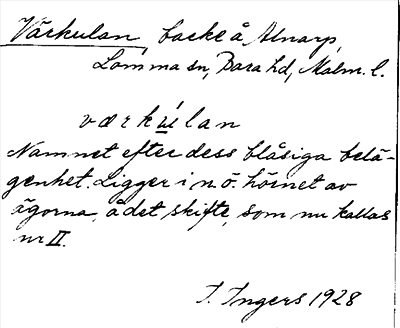 Värkulan, backe å Alnarp,
Lomma sn, Bara hd, Malm. l.
værkúlan
Namnet efter dess blåsiga belä-
genhet. Ligger i n.ö. hörnet av
ägorna, å det skifte, som nu kallas
nr II.
I. Ingers 1928